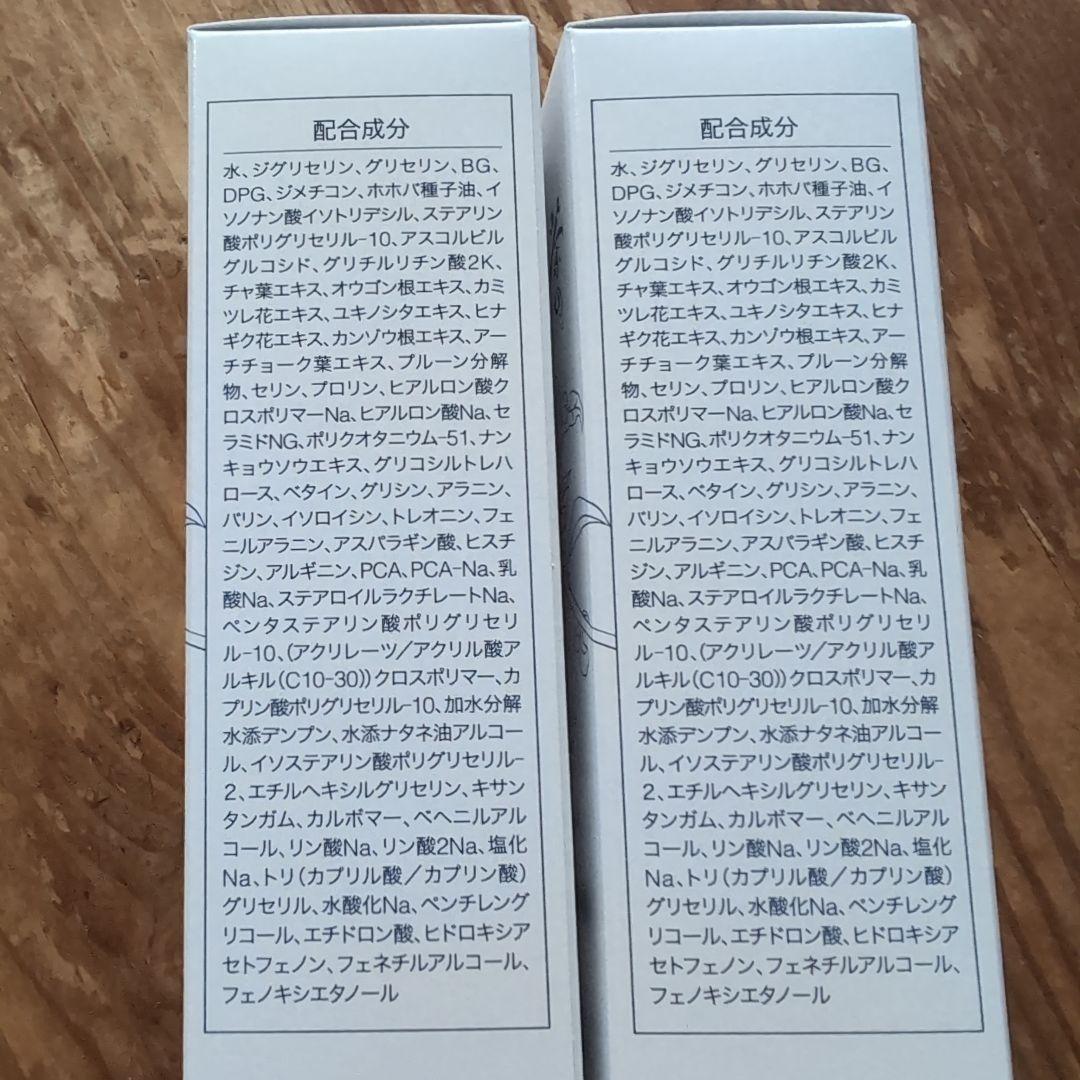 配合成分
水、ジグリセリン、グリセリン、BG、
DPG、ジメチコン、ホホバ種子油、イ
ソノナン酸イソトリデシル、ステアリン
酸ポリグリセリル-10、アスコルビル
グルコシド、グリチルリチン酸2K、
チャ葉エキス、オウゴン根エキス、カミ
ツレ花エキス、ユキノシタエキス、ヒナ
ギク花エキス、カンゾウ根エキス、アー
チチョーク葉エキス、プルーン分解
物、セリン、プロリン、ヒアルロン酸ク
ロスポリマーNa、ヒアルロン酸Na、セ
ラミドNG、ポリクオタニウム-51、ナン
キョウソウエキス、グリコシルトレハ
ロース、ベタイン、グリシン、アラニン、
バリン、イソロイシン、トレオニン、フェ
ニルアラニン、アスパラギン酸、ヒスチ
ジン、アルギニン、PCA、PCA-Na、乳
酸Na、ステアロイルラクチレートNa、
ペンタステアリン酸ポリグリセリ
ル-10、(アクリレーツ/アクリル酸ア
ルキル(C10-30))クロスポリマー、カ
プリン酸ポリグリセリル-10、加水分解
水添デンプン、水添ナタネ油アルコー
ル、イソステアリン酸ポリグリセリル-
2、エチルヘキシルグリセリン、キサン
タンガム、カルボマー、ベヘニルアル
コール、リン酸Na、リン酸2Na、塩化
Na、トリ(カプリル酸/カプリン酸)
グリセリル、水酸化Na、ペンチレング
リコール、エチドロン酸、ヒドロキシア
セトフェノン、フェネチルアルコール、
フェノキシエタノール
配合成分
水、ジグリセリン、グリセリン、BG、
DPG、ジメチコン、ホホバ種子油、イ
ソノナン酸イソトリデシル、ステアリン
酸ポリグリセリル-10、アスコルビル
グルコシド、グリチルリチン酸2K、
チャ葉エキス、オウゴン根エキス、カミ
ツレ花エキス、ユキノシタエキス、ヒナ
ギク花エキス、カンゾウ根エキス、アー
チチョーク葉エキス、プルーン分解
物、セリン、プロリン、ヒアルロン酸ク
ロスポリマーNa、ヒアルロン酸Na、セ
ラミドNG、ポリクオタニウム-51、ナン
キョウソウエキス、グリコシルトレハ
ロース、ベタイン、グリシン、アラニン、
バリン、イソロイシン、トレオニン、フェ
ニルアラニン、アスパラギン酸、ヒスチ
ジン、アルギニン、PCA、PCA-Na、乳
酸Na、ステアロイルラクチレートNa、
ペンタステアリン酸ポリグリセリ
ル-10、(アクリレーツ/アクリル酸ア
ルキル(C10-30))クロスポリマー、カ
プリン酸ポリグリセリル-10、加水分解
水添デンプン、水添ナタネ油アルコー
ル、イソステアリン酸ポリグリセリル-
2、エチルヘキシルグリセリン、キサン
タンガム、カルボマー、ベヘニルアル
コール、リン酸Na、リン酸2Na、塩化
Na、トリ(カプリル酸/カプリン酸)
グリセリル、水酸化Na、ペンチレング
リコール、エチドロン酸、ヒドロキシア
セトフェノン、フェネチルアルコール、
フェノキシエタノール